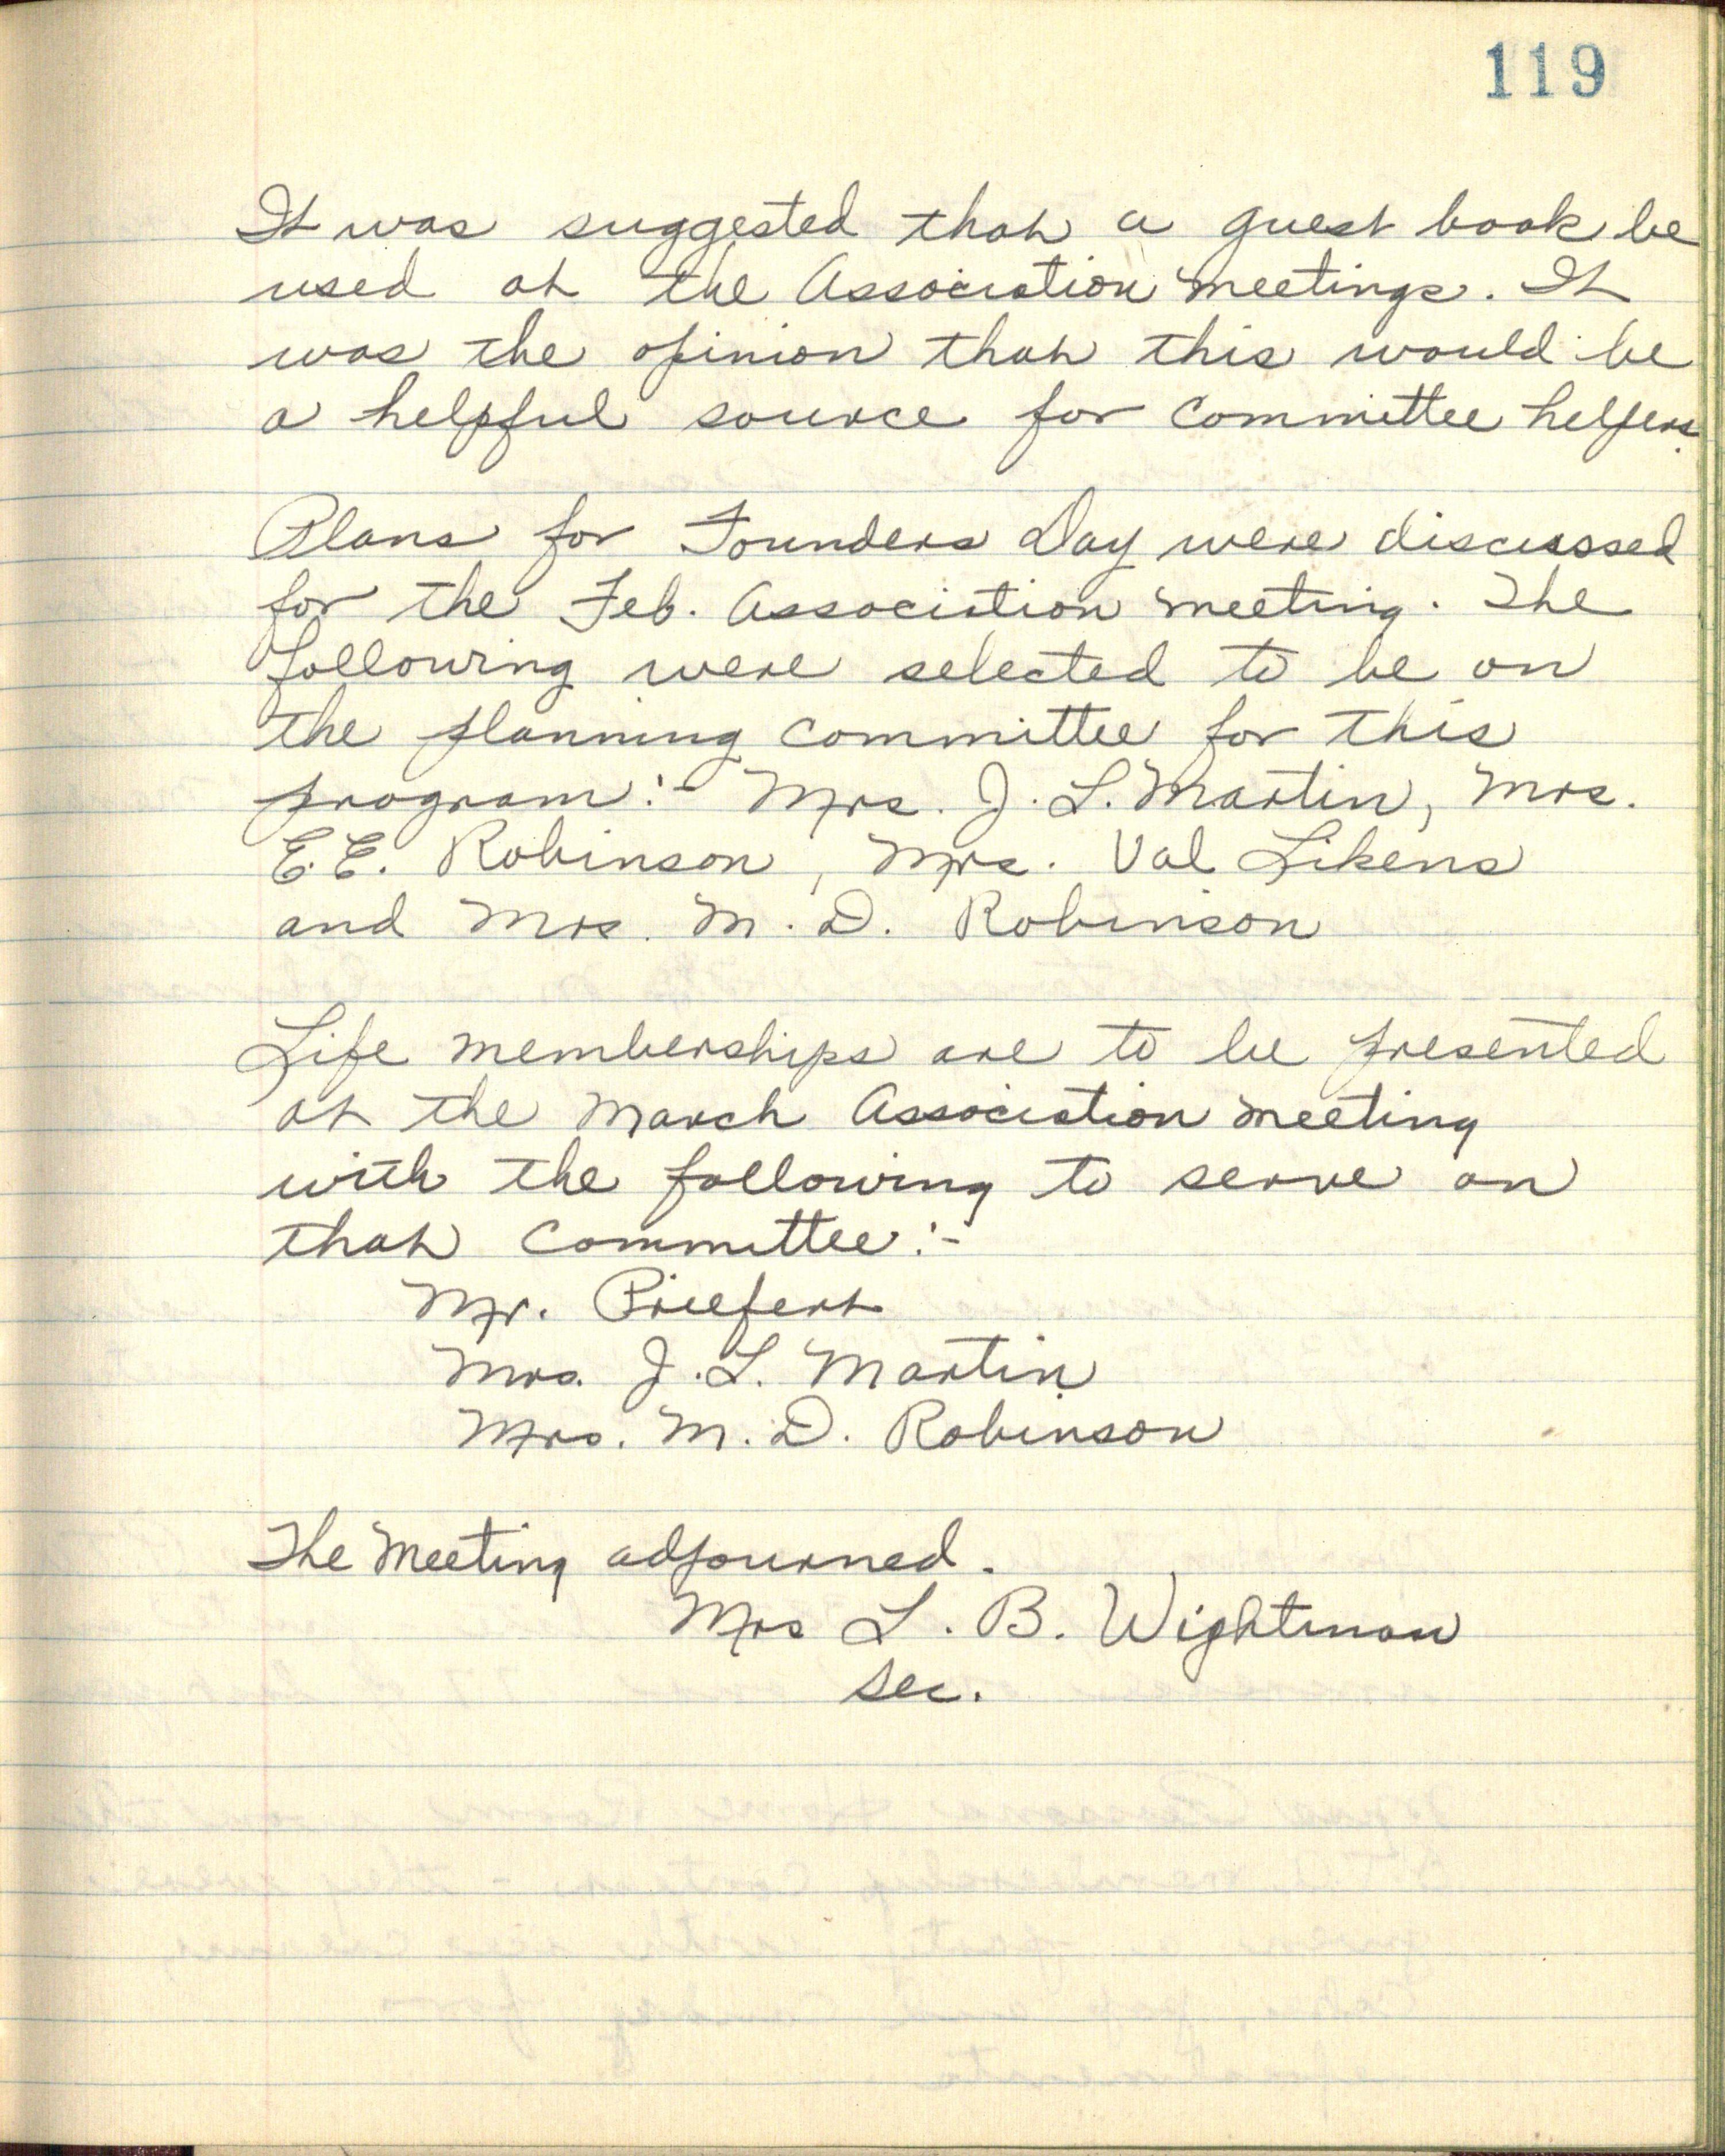 119
It was suggested that a guest book be
used at the Association meetings. It
was the opinion that this would be
a helpful source for committee helpers.
Plans for Founders Day were discussed
for the Feb. Association meeting. The
following were selected to be on
the planning committee for this
program:- Mrs. J. L. Martin, Mrs.
E. E. Robinson, Mrs. Val Likens
and Mrs. M. D. Robinson
Life memberships are to be presented
at the March Association meeting
with the following to serve on
that committee:-
Mr. Priefert
Mrs. J. L. Martin
Mrs. M. D. Robinson
The meeting adjourned.
Mrs L. B. Wightman
Sec.